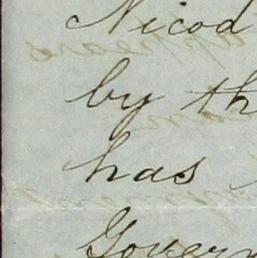 Nicod
by th
has
Govern